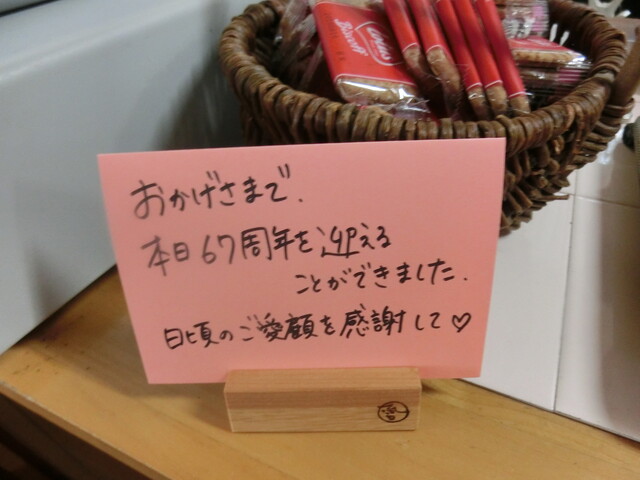 Lotus
Biscoff
おかげさまで.
本日67周年を迎える
ことができました.
日頃のご愛顧を感謝して♡